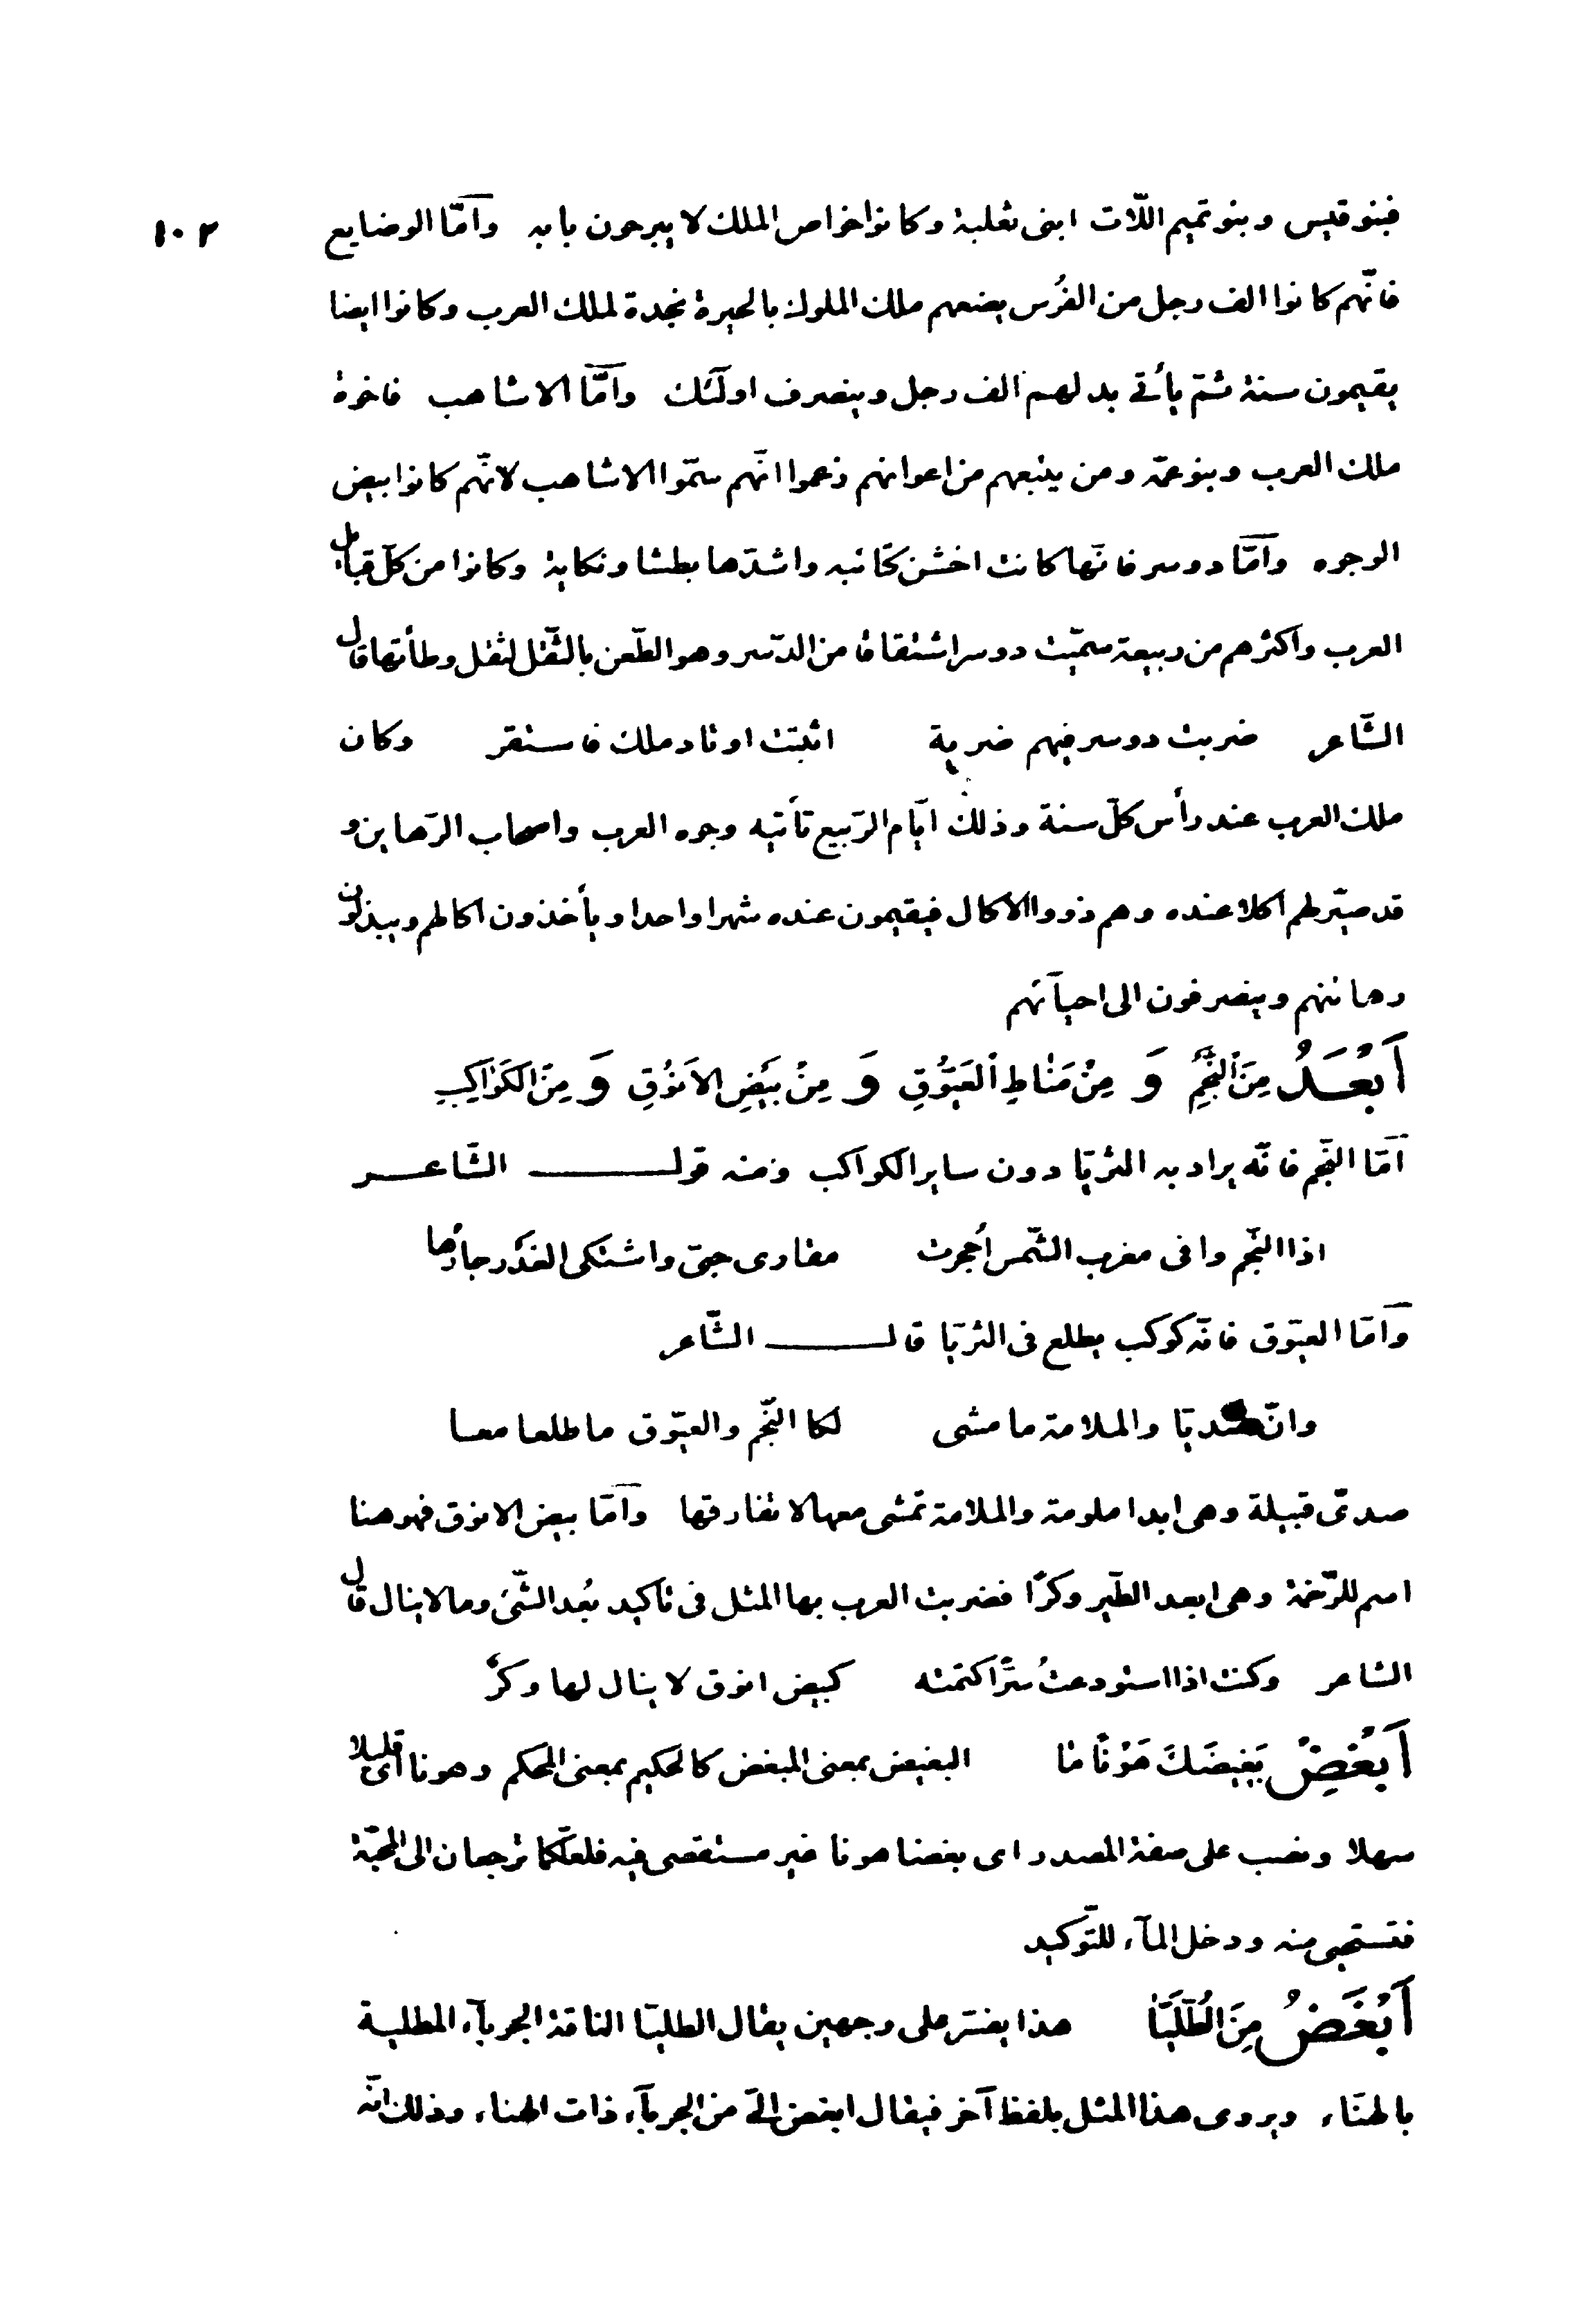 ١٠٢
فبنو قيس وبنو تميم اللّات ابنى ثعلبة وكانوا خواص الملك لا يبرحون بابه وامّا الوضايع
فانّهم كانوا الف رجل من الفُرس يضعهم ملك الملوك بالحيرة نجدة لملك العرب وكانوا ايضا
يقيمون سنة ثمّ يأتى بدلهم الف رجل وينصرف اولئك وامّا الاشاهب فاخوة
ملك العرب وبنو عمّه ومن يتبعهم من اعوانهم زعموا انّهم سمّوا الاشاهب لانّهم كانوا بيض
الوجوه وامّا دوسر فانّها كانت اخشن كتائبه واشدّها بطشا ونكاية وكانوا من كلّ قبائل
العرب واكثرهم من ربيعة سمّيت دوسر اشتقاقا من الدّسر وهو الطّعن بالثّقل لثقل وطأتها قال
الشّاعر ضربت دوسر فيهم ضربة اثبتت اوتاد ملك فاستقر وكان
ملك العرب عند رأس كلّ سنة وذلك ايّام الرّبيع تأتيه وجوه العرب واصحاب الرّهاين و
قد صيّر لهم اكلا عنده وهم ذووا الاكال فيقيمون عنده شهرا واحدا ويأخذون اكالهم ويبذلون
رهائنهم وينصرفون الى احيآئهم
اَبْعَدُ مِنَ النَّجْمِ وَ مِنْ مَنَاطِ الْعَيُّوْقِ وَ مِنْ بَيْضِ الاَنُوْقِ وَ مِنَ الْكَوَاكِبِ
امّا النّجم فانّه يراد به الثريّا دون ساير الكواكب ومنه قول الشّاعر
اذا النّجم وافى مغرب الشّمس اُجحرت مقارى حيّى واشتكى الغدر جارها
وامّا العيّوق فانّه كوكب يطلع فى الثريّا قال الشّاعر
وانّ صديّا والملامة ما مشى لكا النّجم والعيّوق ما طلعا معا
صدىّ قبيلة وهى ابدا ملومة والملامة تمشى معها لا تفارقها وامّا بيض الانوق فهو هنا
اسم للرّخمة وهى ابعد الطّير وكرًا فضربت العرب بها المثل فى تاكيد بُعد الشّئ وما لا ينال قال
الشاعر وكنت اذا استودعتُ سرًّا كتمته كبيض انوق لا ينال لها وكرٌ
اَبْغِضْ بَغِيضَكَ هَوْنًا مَا البغيض بمعنى المبغض كالحكيم بمعنى المحكم وهونا اى قليلا
سهلا ونصب على صفة المصدر اى بغضا هونا غير مستقصى فيه فلعلّكما ترجعان الى المحبّة
فتستحيى منه ودخل المآء للتّوكيد
اَبْغَضُ مِنَ الطَّلْيَا هذا يفسّر على وجهين يقال الطليّا الناقة الجربآء المطلية
بالهنآء ويروى هذا المثل بلفظ آخر فيقال ابغض الىّ من الجربآء ذات الهناء وذلك انّه